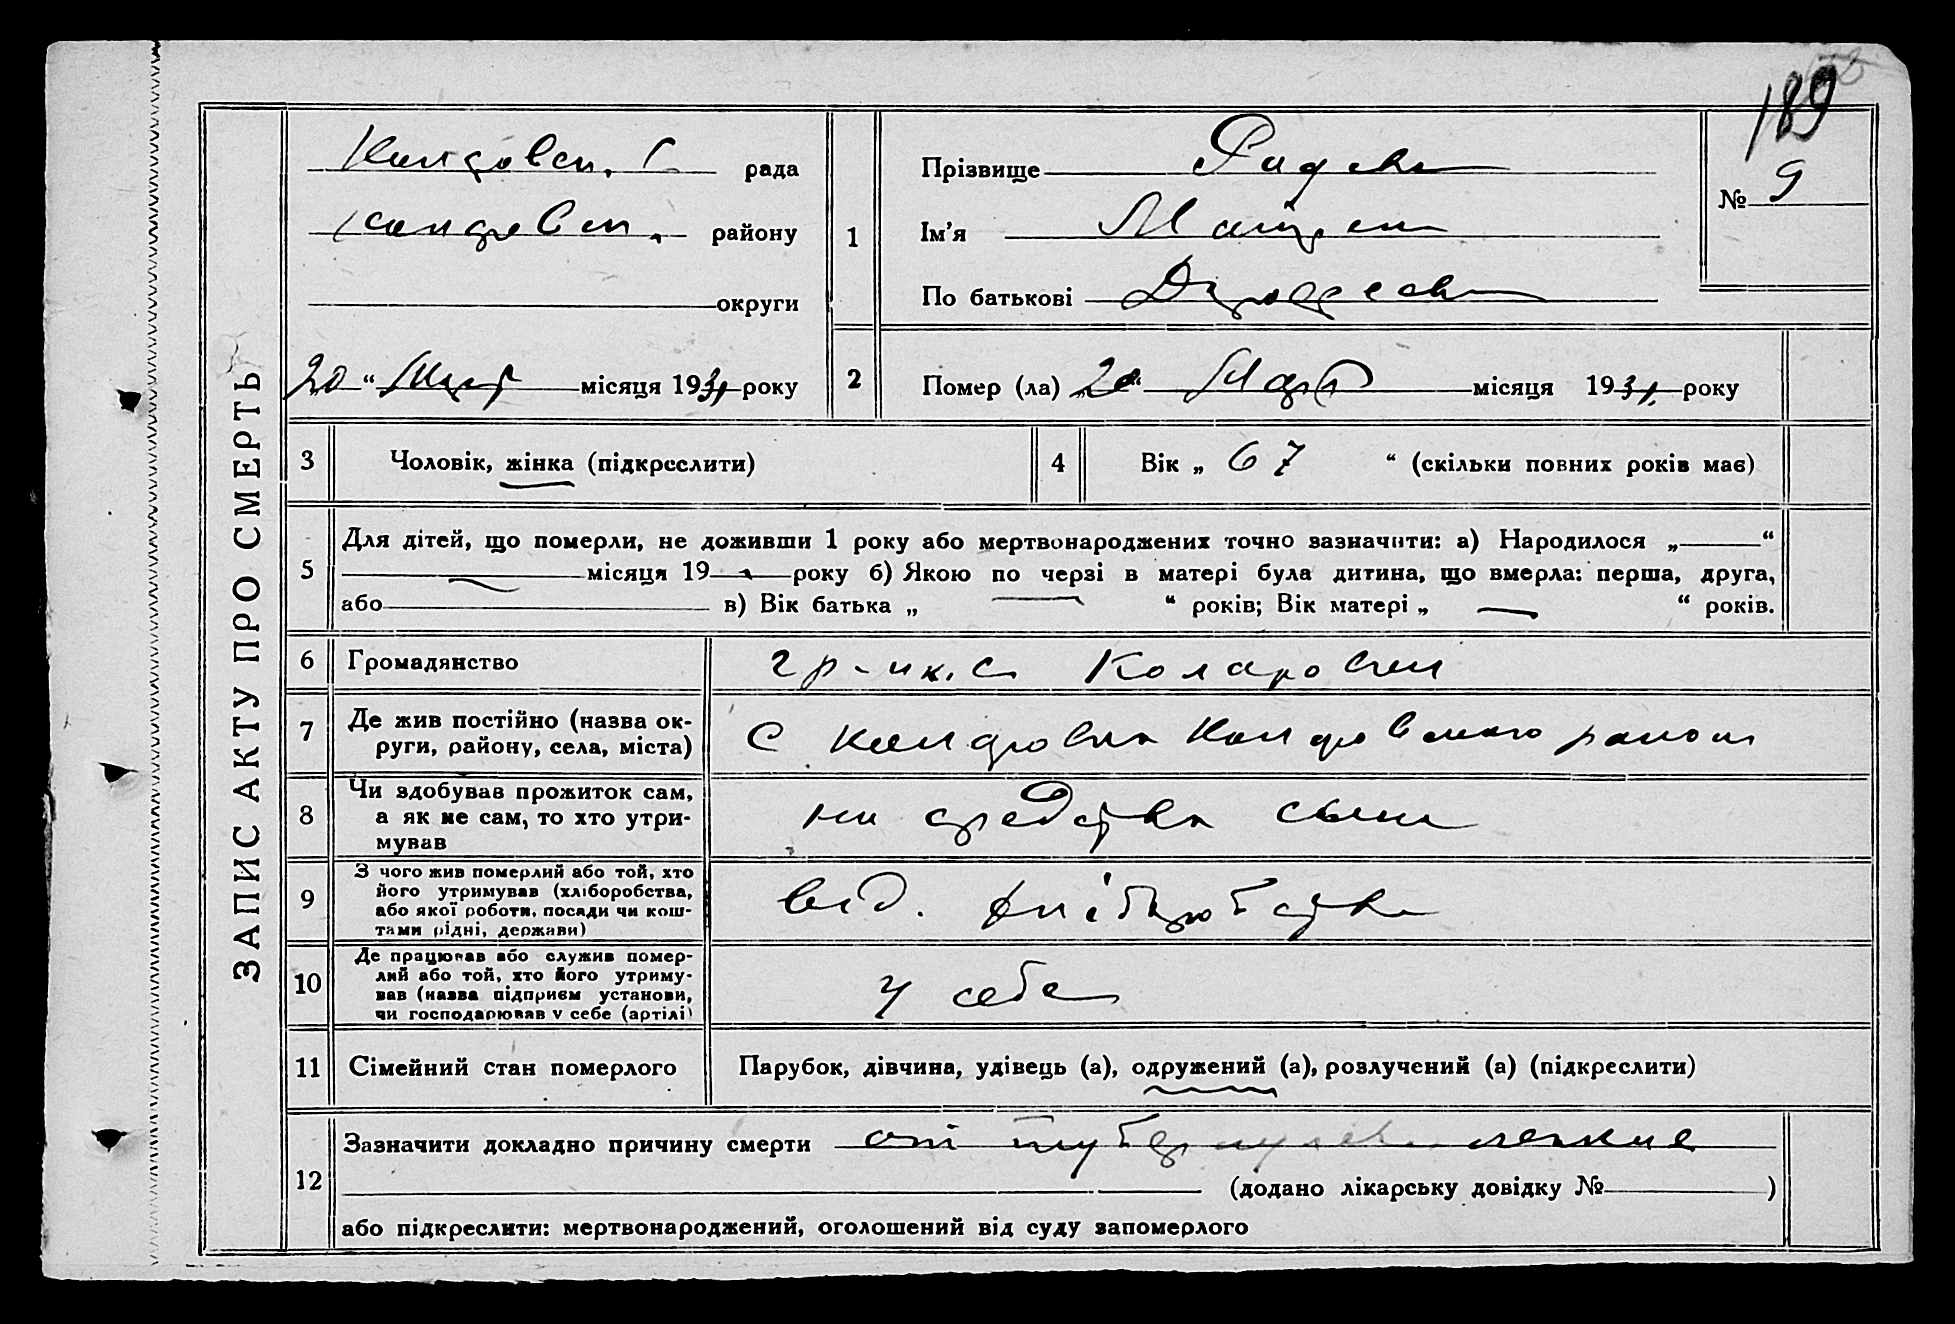 189
ЗАПИС АКТУ ПРО СМЕРТЬ
рада
району
округи
„20“ Март місяця 1931 року
1
Прізвище
Ім'я
По батькові
№ 9
2
Помер (ла) „20“ Март місяця 1931 року
3
Чоловік, жінка (підкреслити)
4
Вік „ 67 “ (скільки повних років має)
5
Для дітей, що померли, не доживши 1 року або мертвонароджених точно зазначити: а) Народилося „ “
місяця 19 року б) Якою по черзі в матері була дитина, що вмерла: перша, друга,
або в) Вік батька „ “ років; Вік матері „ “ років.
6
Громадянство
гр-нк. с Коларовки
7
Де жив постійно (назва ок-
руги, району, села, міста)
С
8
Чи здобував прожиток сам,
а як не сам, то хто утри-
мував
на средства сына
9
З чого жив померлий або той, хто
його утримував (хліборобства,
або якої роботи, посади чи кош-
тами рідні, держави)
від. хліборобства
10
Де працював або служив помер-
лий або той, хто його утриму-
вав (назва підприєм установи,
чи господарював у себе (артілі)
у себе
11
Сімейний стан померлого
Парубок, дівчина, удівець (а), одружений (а), розлучений (а) (підкреслити)
12
Зазначити докладно причину смерти от туберкулеза легких
(додано лікарську довідку № )
або підкреслити: мертвонароджений, оголошений від суду запомерлого